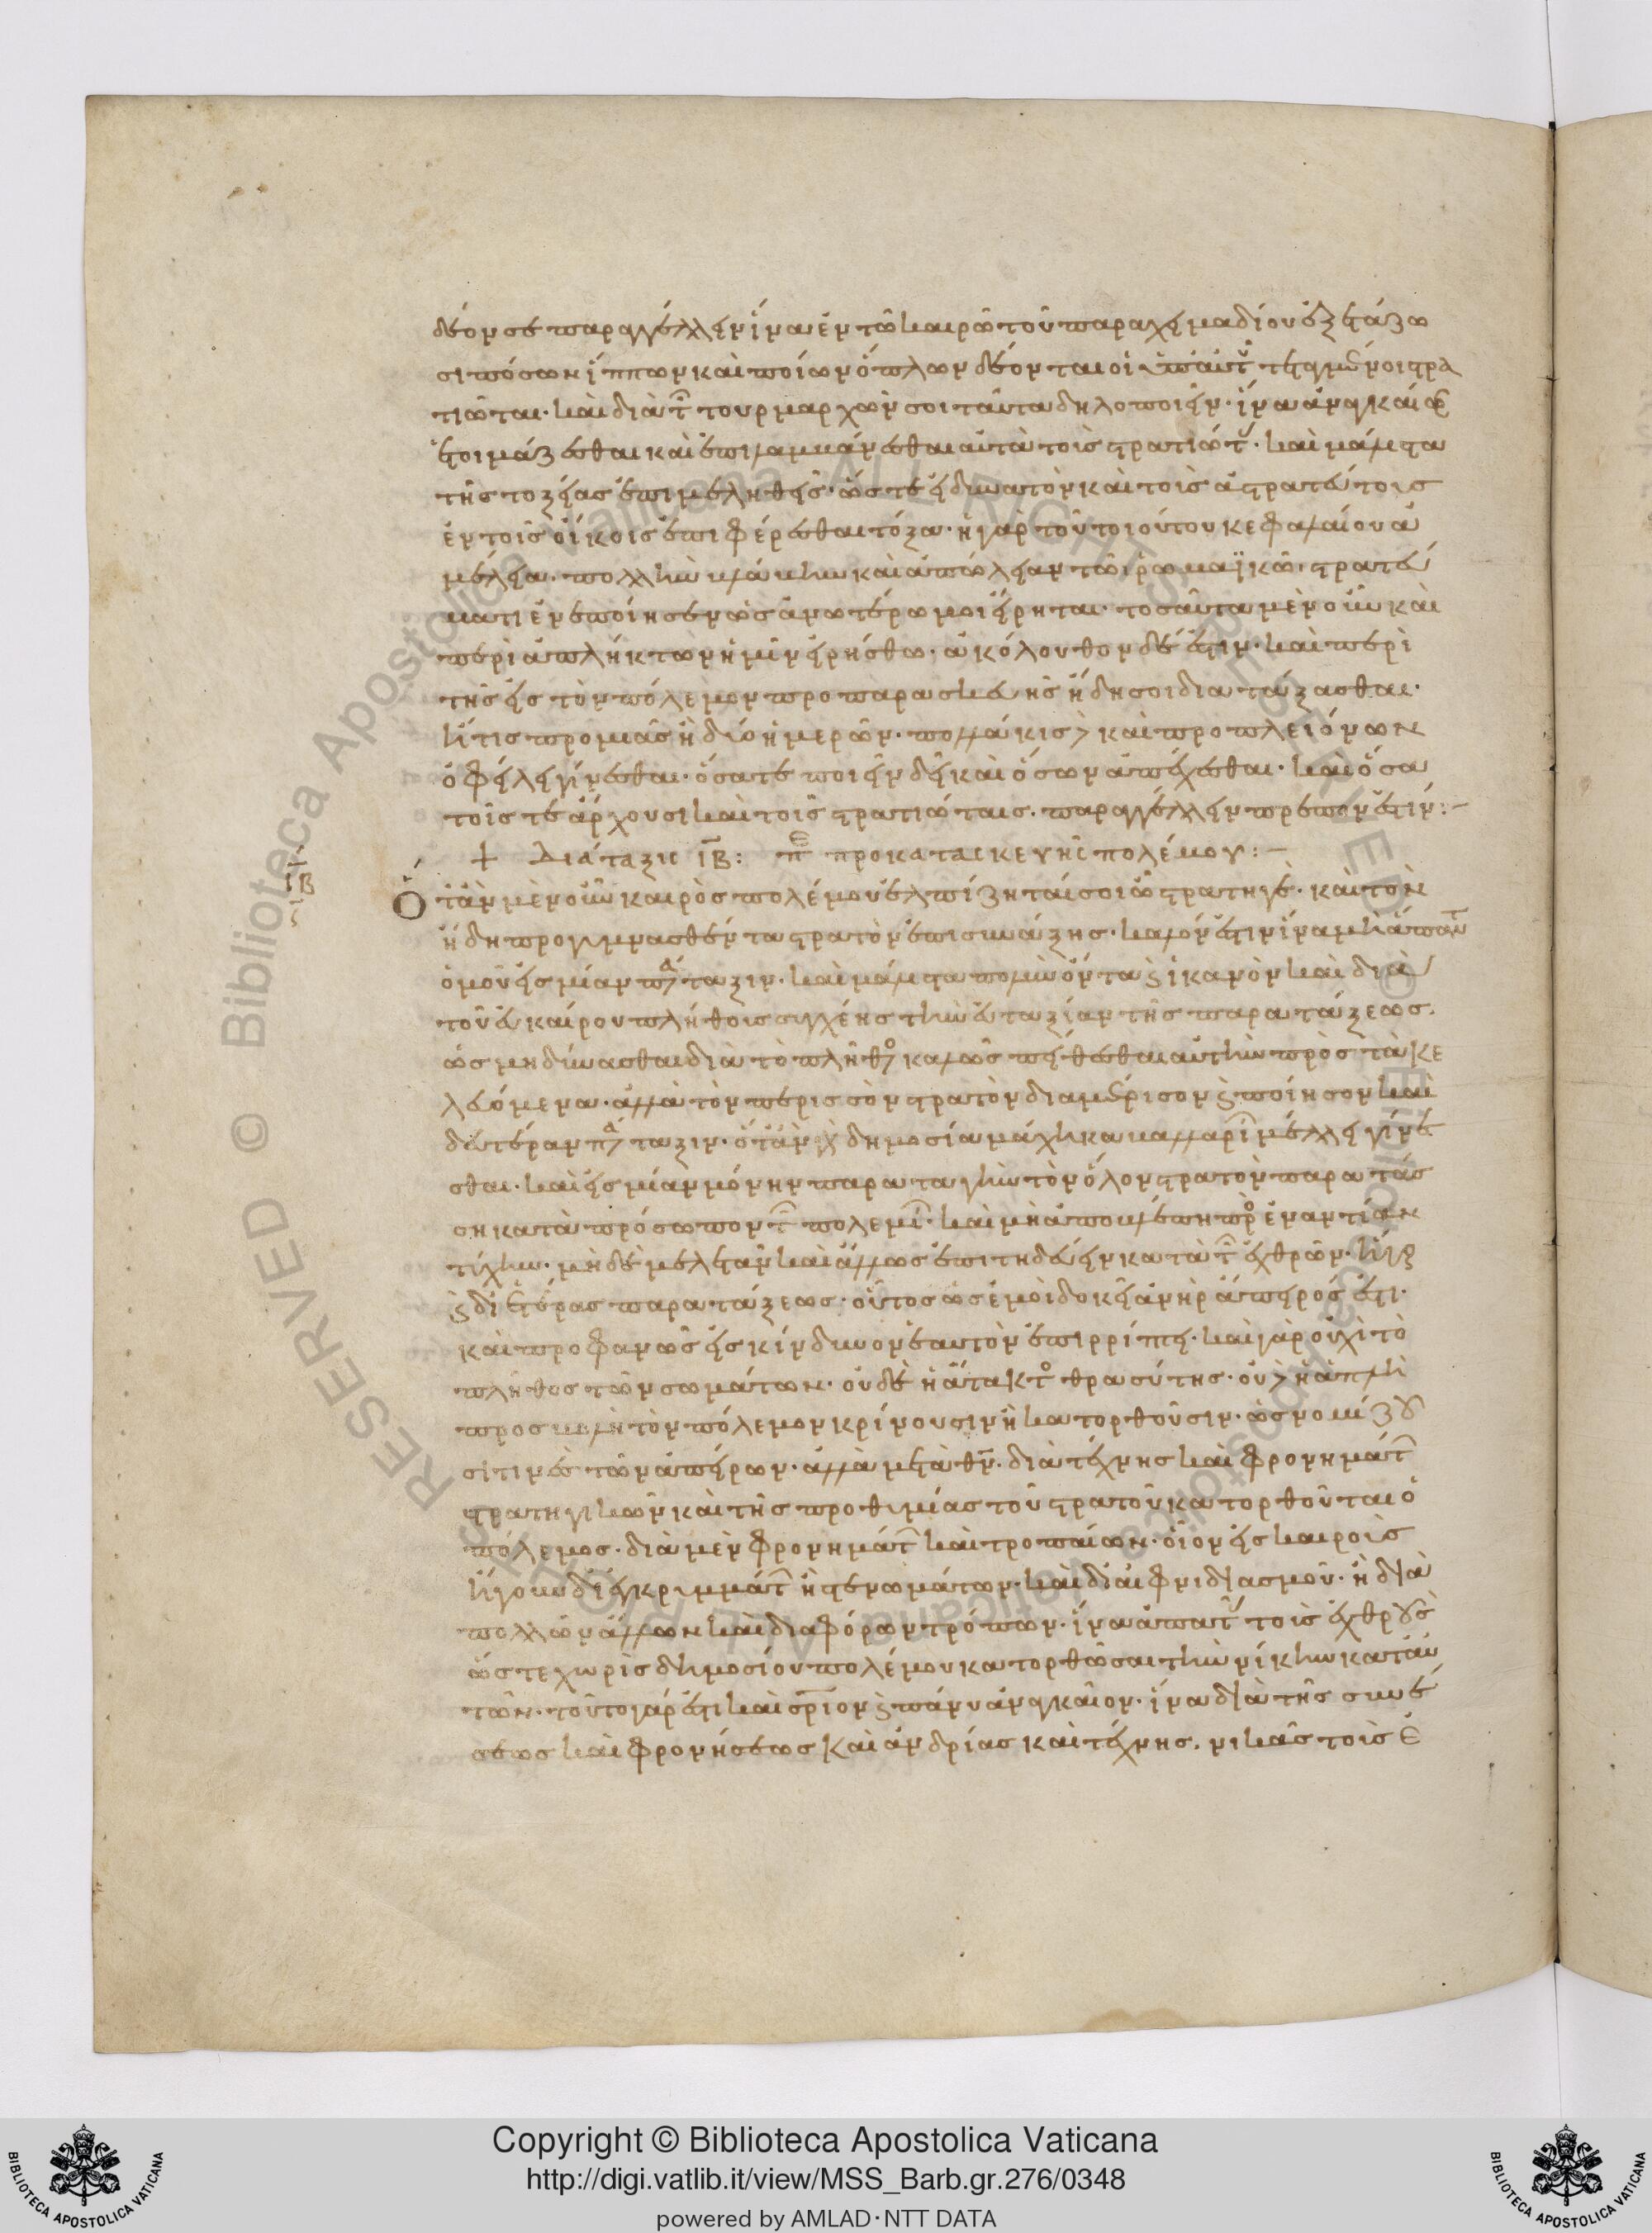 δέον σε παραγγέλλειν ἵνα ἐν τῶ καιρῶ τοῦ παραχειμαδίου ἐξετάζω
σι πόσων ἵππων καὶ ποίων ὅπλων δέονται οἱ τεταγμένοι στρα
τιῶται· καὶ διὰ τ τουρμαρχῶν σοι ταῦτα δηλοποιεῖν· ἵνα ἀναγκαίως
ἑτοιμάζεσθαι καὶ ἐπιλαμβάνεσθαι αὐτὰ τοῖς στρατιώτ· καὶ μάλιστα
τῆς τοξείας ἐπιμεληθεῖς· ὥστε εἰ δυνατὸν καὶ τοῖς ἀστρατεύτοις
ἐν τοῖς οἴκοις ἐπιφέρεσθαι τόξα· ἡ γὰρ τοῦ τοιούτου κεφαλαίου ἀ
μέλεια· πολλὴν βλάβην καὶ ἀπώλειαν τῶ ῥωμαϊκῶ στρατεύ
ματι ἐνεποίησεν ὡς ἀνωτέρω μοι εἴρηται· τοσαῦτα μὲν οὖν καὶ
περὶ ἀπλήκτων ἡμῖν εἰρήσθω· ἀκόλουθον δέ ἐστιν· καὶ περὶ
τῆς εἰς τὸν πόλεμον προπαρασκευῆς ἤδη σοι διατάξασθαι·
ἥτις πρὸ μιᾶς ἢ δύο ἡμερῶν· πολλάκις δὲ καὶ προ πλειόνων
ὀφείλει γίνεσθαι· ὅσα τε ποιεῖν δεῖ καὶ ὅσων ἀπέχεσθαι· καὶ ὅσα
τοῖς τε ἄρχουσι καὶ τοῖς στρατιώταις· παραγγέλλειν πρέπον ἐστίν:–
+ Διάταξις ΙΒ: πε προκατασκευῆς πολέμου:–
ΙΒ
Ὅταν μὲν οὖν καιρὸς πολέμου ἐλπίζηταί σοι ὦ στρατηγέ· καὶ τὸν
ἤδη προγυμνασθέντα στρατὸν ἐπισυνάξης· καλόν ἐστιν ἵνα μὴ ἅπαντ
ὁμοῦ εἰς μίαν πα τάξιν· καὶ μάλιστα πολὺν ὄντα καὶ ἱκανὸν καὶ διὰ
τοῦ ἀκαίρου πλήθους συγχέης τὴν εὐταξίαν τῆς παρατάξεως·
ὡς μὴ δύνασθαι διὰ τὸ πλῆθος καλῶς πείθεσθαι αὐτὴν πρὸς τὰ κε
λευόμενα· ἀλλὰ τὸν περισσὸν στρατὸν διαμέρισον καὶ ποίησον καὶ
δευτέραν πα τάξιν· ὅταν γὰρ δημοσία μάχη καβαλλαρι μέλλει γίνε
σθαι· καὶ εἰς μίαν μόνην παραταγὴν τὸν ὅλον στρατὸν παρατάσ
ση κατὰ πρόσωπον τ πολεμι· καὶ μὴ ἀποβλέπη πρὸ ἐναντίαν
τύχην· μὴ δὲ μελετᾶν καὶ ἄλλως ἐπιτηδεύειν κατὰ τ ἐχθρῶν·
καὶ δι ἑτέρας παρατάξεως· οὗτος ὡς ἐμοὶ δοκεῖ ἀνὴρ ἄπειρός ἐστι·
καὶ προφανῶς εἰς κίνδυνον ἑαυτὸν ἐπιρρίπτει· καὶ γὰρ οὐχὶ τὸ
πλῆθος τῶν σωμάτων· οὐδὲ ἡ ἄτακτος θρασύτης· οὐδὲ ἡ ἁπλὴ
προσβολὴ τὸν πόλεμον κρίνουσιν ἢ κατορθοῦσιν· ὡς νομίζου
σί τινες τῶν ἀπείρων· ἀλλὰ μετὰ θν· διὰ τέχνης καὶ φρονημάτ
στρατηγικῶν καὶ τῆς προθυμίας τοῦ στρατοῦ κατορθοῦται ὁ
πόλεμος· διὰ μὲν φρονημάτ καὶ τροπαίων· οἷον εἰς καιροὺς
ἤγουν δι ἐγκρυμμάτ ἢ στενωμάτων· καὶ δι αἰφνιδιασμοῦ· ἢ διὰ
πολλῶν ἄλλων καὶ διαφόρων τρόπων· ἵνα ἀπατ τοὺς ἐχθροὺς
ὥστε χωρὶς δημοσίου πολέμου κατορθῶσαι τὴν νίκην κατ αὐ
τῶν· τοῦτο γάρ ἐστι καὶ σριον καὶ πάνυ ἀναγκαῖον· ἵνα διὰ τῆς συνέ
σεως καὶ φρονήσεως καὶ ἀνδρίας καὶ τέχνης· νικᾶς τοὺς ἐ
Copyright © Biblioteca Apostolica Vaticana
http://digi.vatlib.it/view/MSS_Barb.gr.276/0348
powered by AMLAD·NTT DATA
BIBLIOTECA APOSTOLICA VATICANA
BIBLIOTECA APOSTOLICA VATICANA